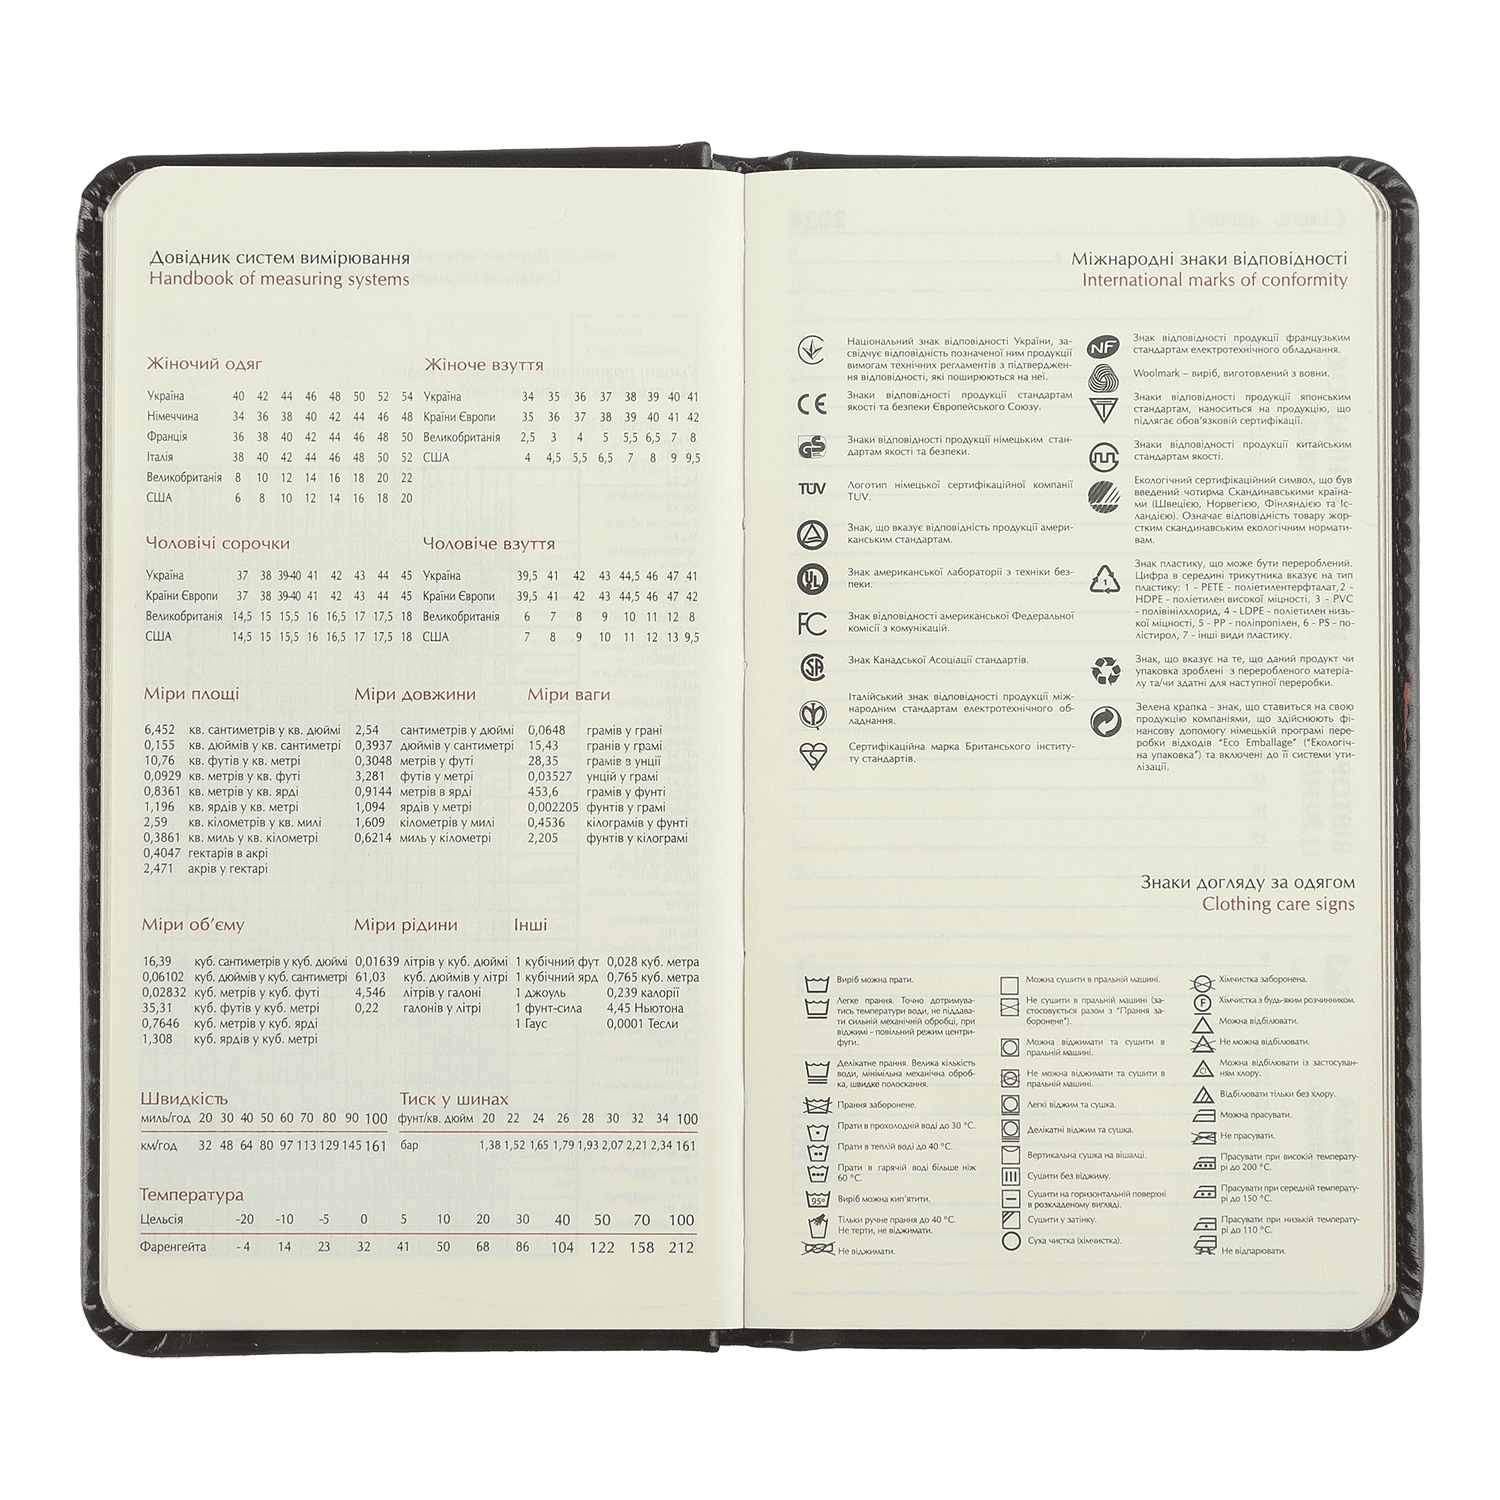 Довідник систем вимірювання
Handbook of measuring systems
Жіночий одяг
Україна 40 42 44 46 48 50 52 54
Німеччина 34 36 38 40 42 44 46 48
Франція 36 38 40 42 44 46 48 50
Італія 38 40 42 44 46 48 50 52
Великобританія 8 10 12 14 16 18 20 22
США 6 8 10 12 14 16 18 20
Жіноче взуття
Україна 34 35 36 37 38 39 40 41
Країни Європи 35 36 37 38 39 40 41 42
Великобританія 2,5 3 4 5 5,5 6,5 7 8
США 4 4,5 5,5 6,5 7 8 9 9,5
Чоловічі сорочки
Україна 37 38 39-40 41 42 43 44 45
Країни Європи 37 38 39-40 41 42 43 44 45
Великобританія 14,5 15 15,5 16 16,5 17 17,5 18
США 14,5 15 15,5 16 16,5 17 17,5 18
Чоловіче взуття
Україна 39,5 41 42 43 44,5 46 47 41
Країни Європи 39,5 41 42 43 44,5 46 47 42
Великобританія 6 7 8 9 10 11 12 8
США 7 8 9 10 11 12 13 9,5
Міри площі
6,452 кв. сантиметрів у кв. дюймі
0,155 кв. дюймів у кв. сантиметрі
10,76 кв. футів у кв. метрі
0,0929 кв. метрів у кв. футі
0,8361 кв. метрів у кв. ярді
1,196 кв. ярдів у кв. метрі
2,59 кв. кілометрів у кв. милі
0,3861 кв. миль у кв. кілометрі
0,4047 гектарів в акрі
2,471 акрів у гектарі
Міри довжини
2,54 сантиметрів у дюймі
0,3937 дюймів у сантиметрі
0,3048 метрів у футі
3,281 футів у метрі
0,9144 метрів в ярді
1,094 ярдів у метрі
1,609 кілометрів у милі
0,6214 миль у кілометрі
Міри ваги
0,0648 грамів у грані
15,43 гранів у грамі
28,35 грамів в унції
0,03527 унцій у грамі
453,6 грамів у фунті
0,002205 фунтів у грамі
0,4536 кілограмів у фунті
2,205 фунтів у кілограмі
Міри об'єму
16,39 куб. сантиметрів у куб. дюймі
0,06102 куб. дюймів у куб. сантиметрі
0,02832 куб. метрів у куб. футі
35,31 куб. футів у куб. метрі
0,7646 куб. метрів у куб. ярді
1,308 куб. ярдів у куб. метрі
Міри рідини
0,01639 літрів у куб. дюймі
61,03 куб. дюймів у літрі
4,546 літрів у галоні
0,22 галонів у літрі
Інші
1 кубічний фут 0,028 куб. метра
1 кубічний ярд 0,765 куб. метра
1 джоуль 0,239 калорії
1 фунт-сила 4,45 Ньютона
1 Гаус 0,0001 Тесли
Швидкість
миль/год 20 30 40 50 60 70 80 90 100
км/год 32 48 64 80 97 113 129 145 161
Тиск у шинах
фунт/кв. дюйм 20 22 24 26 28 30 32 34 100
бар 1,38 1,52 1,65 1,79 1,93 2,07 2,21 2,34 161
Температура
Цельсія -20 -10 -5 0 5 10 20 30 40 50 70 100
Фаренгейта -4 14 23 32 41 50 68 86 104 122 158 212
Міжнародні знаки відповідності
International marks of conformity
Національний знак відповідності України, за-
свідчує відповідність позначеної ним продукції
вимогам технічних регламентів з підтверджен-
ня відповідності, які поширюються на неї.
CE
Знаки відповідності продукції стандартам
якості та безпеки Європейського Союзу.
GS
Знаки відповідності продукції німецьким стан-
дартам якості та безпеки.
TÜV
Логотип німецької сертифікаційної компанії
TUV.
Знак, що вказує відповідність продукції амери-
канським стандартам.
UL
Знак американської лабораторії з техніки без-
пеки.
FC
Знак відповідності американської Федеральної
комісії з комунікацій.
SA
Знак Канадської Асоціації стандартів.
Італійський знак відповідності продукції між-
народним стандартам електротехнічного об-
ладнання.
Сертифікаційна марка Британського інститу-
ту стандартів.
NF
Знак відповідності продукції французьким
стандартам електротехнічного обладнання.
Woolmark – виріб, виготовлений з вовни.
Знаки відповідності продукції японським
стандартам, наноситься на продукцію, що
підлягає обов'язковій сертифікації.
Знаки відповідності продукції китайським
стандартам якості.
Екологічний сертифікаційний символ, що був
введений чотирма Скандинавськими країна-
ми (Швецією, Норвегією, Фінляндією та Іс-
ландією). Означає відповідність товару жор-
стким скандинавським екологічним нормати-
вам.
1
Знак пластику, що може бути перероблений.
Цифра в середині трикутника вказує на тип
пластику: 1 - PETE - поліетилентерфталат,2 -
HDPE - поліетилен високої міцності, 3 - PVC
- полівінілхлорид, 4 - LDPE - поліетилен низь-
кої міцності, 5 - PP - поліпропілен, 6 - PS - по-
лістирол, 7 - інші види пластику.
Знак, що вказує на те, що даний продукт чи
упаковка зроблені з переробленого матеріа-
лу та/чи здатні для наступної переробки.
Зелена крапка - знак, що ставиться на свою
продукцію компаніями, що здійснюють фі-
нансову допомогу німецькій програмі пере-
робки відходів "Eco Emballage" ("Екологіч-
на упаковка") та включені до її системи ути-
лізації.
Знаки догляду за одягом
Clothing care signs
Виріб можна прати.
Легке прання. Точно дотримува-
тись температури води, не піддава-
ти сильній механічній обробці, при
віджимі - повільний режим центри-
фуги.
Делікатне прання. Велика кількість
води, мінімільна механічна оброб-
ка, швидке полоскання.
Прання заборонене.
Прати в прохолодній воді до 30 °C.
Прати в теплій воді до 40 °C.
Прати в гарячій воді більше ніж
60 °C.
95°
Виріб можна кип'ятити.
Тільки ручне прання до 40 °C.
Не терти, не віджимати.
Не віджимати.
Можна сушити в пральній машині.
Не сушити в пральній машині (за-
стосовується разом з "Прання за-
боронене").
Можна віджимати та сушити в
пральній машині.
Не можна віджимати та сушити в
пральній машині.
Легкі віджим та сушка.
Делікатні віджим та сушка.
Вертикальна сушка на вішалці.
Сушити без віджиму.
Сушити на горизонтальній поверхні
в розкладеному вигляді.
Сушити у затінку.
Суха чистка (хімчистка).
Хімчистка заборонена.
F
Хімчистка з будь-яким розчинником.
Можна відбілювати.
Не можна відбілювати.
Cl
Можна відбілювати із застосуван-
ням хлору.
Відбілювати тільки без хлору.
Можна прасувати.
Не прасувати.
Прасувати при високій температу-
рі до 200 °C.
Прасувати при середній температу-
рі до 150 °C.
Прасувати при низькій температу-
рі до 110 °C.
Не відпарювати.